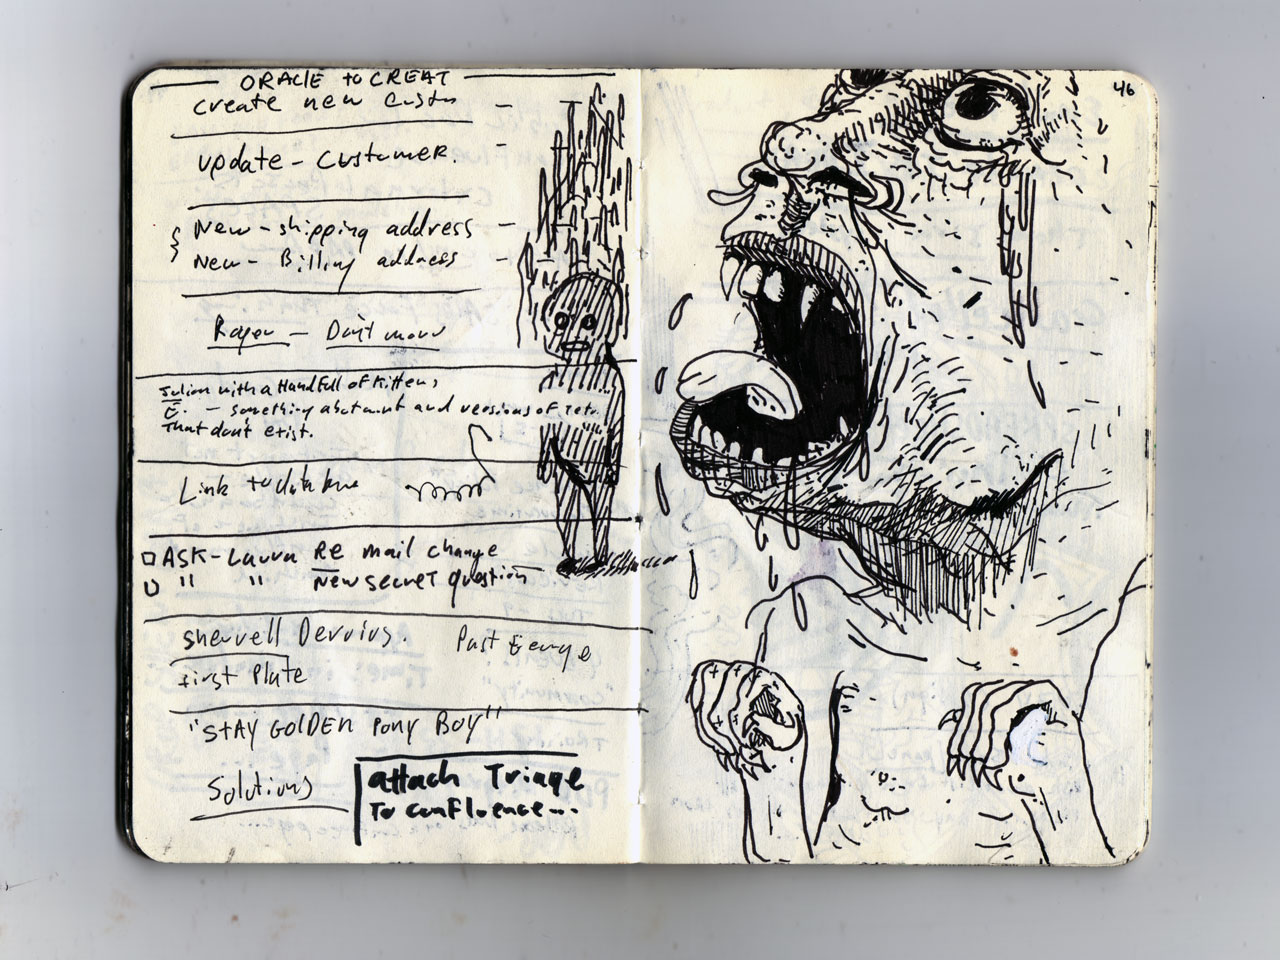 ORACLE to CREAT
create new Custm
update - Customer.
New - shipping address
New - Billing address
Don't move
with a Handfull of Kittens
E. - something about mnt and versions of
That don't exist.
Link to databse
ASK - Laura RE mail change
" " New secret question
Past
First Plate
"STAY GOLDEN Pony BOY"
Solutions
attach Triage
To confluence...
46